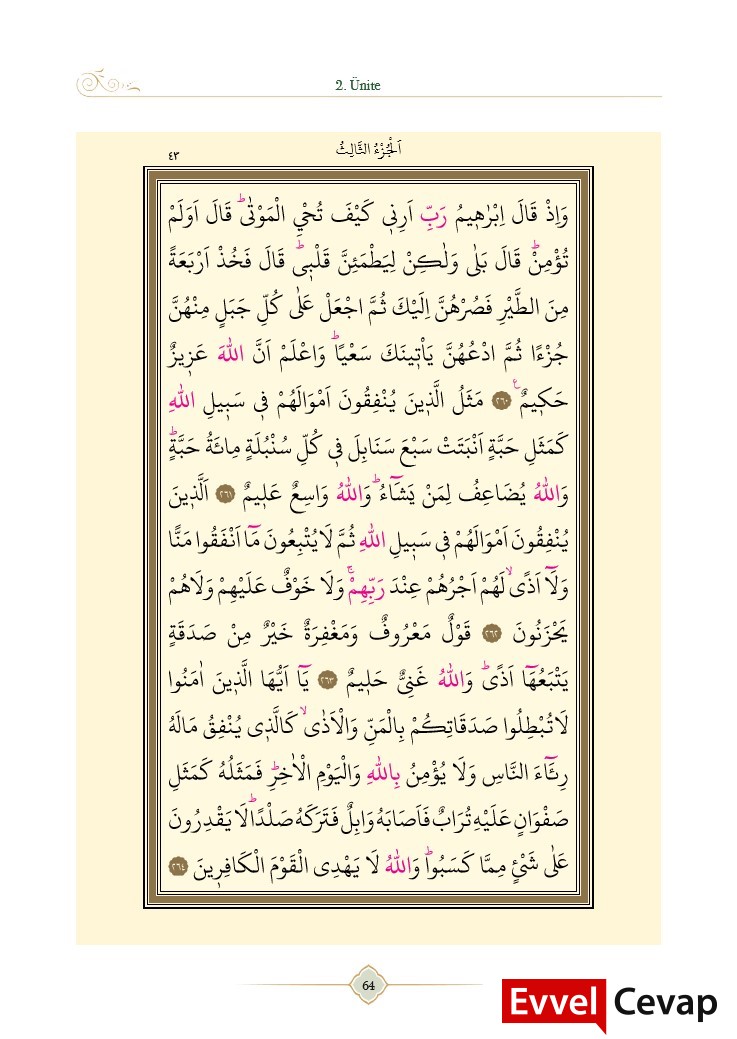 2. Ünite
اَلْجُزْءُ الثَّالِثُ
٤٣
وَاِذْ قَالَ اِبْرٰه۪يمُ رَبِّ اَرِن۪ي كَيْفَ تُحْيِ الْمَوْتٰىۜ قَالَ اَوَلَمْ
تُؤْمِنْۜ قَالَ بَلٰى وَلٰكِنْ لِيَطْمَئِنَّ قَلْب۪يۜ قَالَ فَخُذْ اَرْبَعَةً
مِنَ الطَّيْرِ فَصُرْهُنَّ اِلَيْكَ ثُمَّ اجْعَلْ عَلٰى كُلِّ جَبَلٍ مِنْهُنَّ
جُزْءًا ثُمَّ ادْعُهُنَّ يَأْت۪ينَكَ سَعْيًاۜ وَاعْلَمْ اَنَّ اللّٰهَ عَز۪يزٌ
حَك۪يمٌ۟ ﴿٢٦٠﴾ مَثَلُ الَّذ۪ينَ يُنْفِقُونَ اَمْوَالَهُمْ ف۪ي سَب۪يلِ اللّٰهِ
كَمَثَلِ حَبَّةٍ اَنْبَتَتْ سَبْعَ سَنَابِلَ ف۪ي كُلِّ سُنْبُلَةٍ مِائَةُ حَبَّةٍۜ
وَاللّٰهُ يُضَاعِفُ لِمَنْ يَشَٓاءُۜ وَاللّٰهُ وَاسِعٌ عَل۪يمٌ ﴿٢٦١﴾ اَلَّذ۪ينَ
يُنْفِقُونَ اَمْوَالَهُمْ ف۪ي سَب۪يلِ اللّٰهِ ثُمَّ لَا يُتْبِعُونَ مَٓا اَنْفَقُوا مَنًّا
وَلَٓا اَذًىۙ لَهُمْ اَجْرُهُمْ عِنْدَ رَبِّهِمْۚ وَلَا خَوْفٌ عَلَيْهِمْ وَلَا هُمْ
يَحْزَنُونَ ﴿٢٦٢﴾ قَوْلٌ مَعْرُوفٌ وَمَغْفِرَةٌ خَيْرٌ مِنْ صَدَقَةٍ
يَتْبَعُهَٓا اَذًىۜ وَاللّٰهُ غَنِيٌّ حَل۪يمٌ ﴿٢٦٣﴾ يَٓا اَيُّهَا الَّذ۪ينَ اٰمَنُوا
لَا تُبْطِلُوا صَدَقَاتِكُمْ بِالْمَنِّ وَالْاَذٰىۙ كَالَّذ۪ي يُنْفِقُ مَالَهُ
رِئَٓاءَ النَّاسِ وَلَا يُؤْمِنُ بِاللّٰهِ وَالْيَوْمِ الْاٰخِرِۜ فَمَثَلُهُ كَمَثَلِ
صَفْوَانٍ عَلَيْهِ تُرَابٌ فَاَصَابَهُ وَابِلٌ فَتَرَكَهُ صَلْدًاۜ لَا يَقْدِرُونَ
عَلٰى شَيْءٍ مِمَّا كَسَبُواۜ وَاللّٰهُ لَا يَهْدِي الْقَوْمَ الْكَافِر۪ينَ ﴿٢٦٤﴾
64
Evvel Cevap